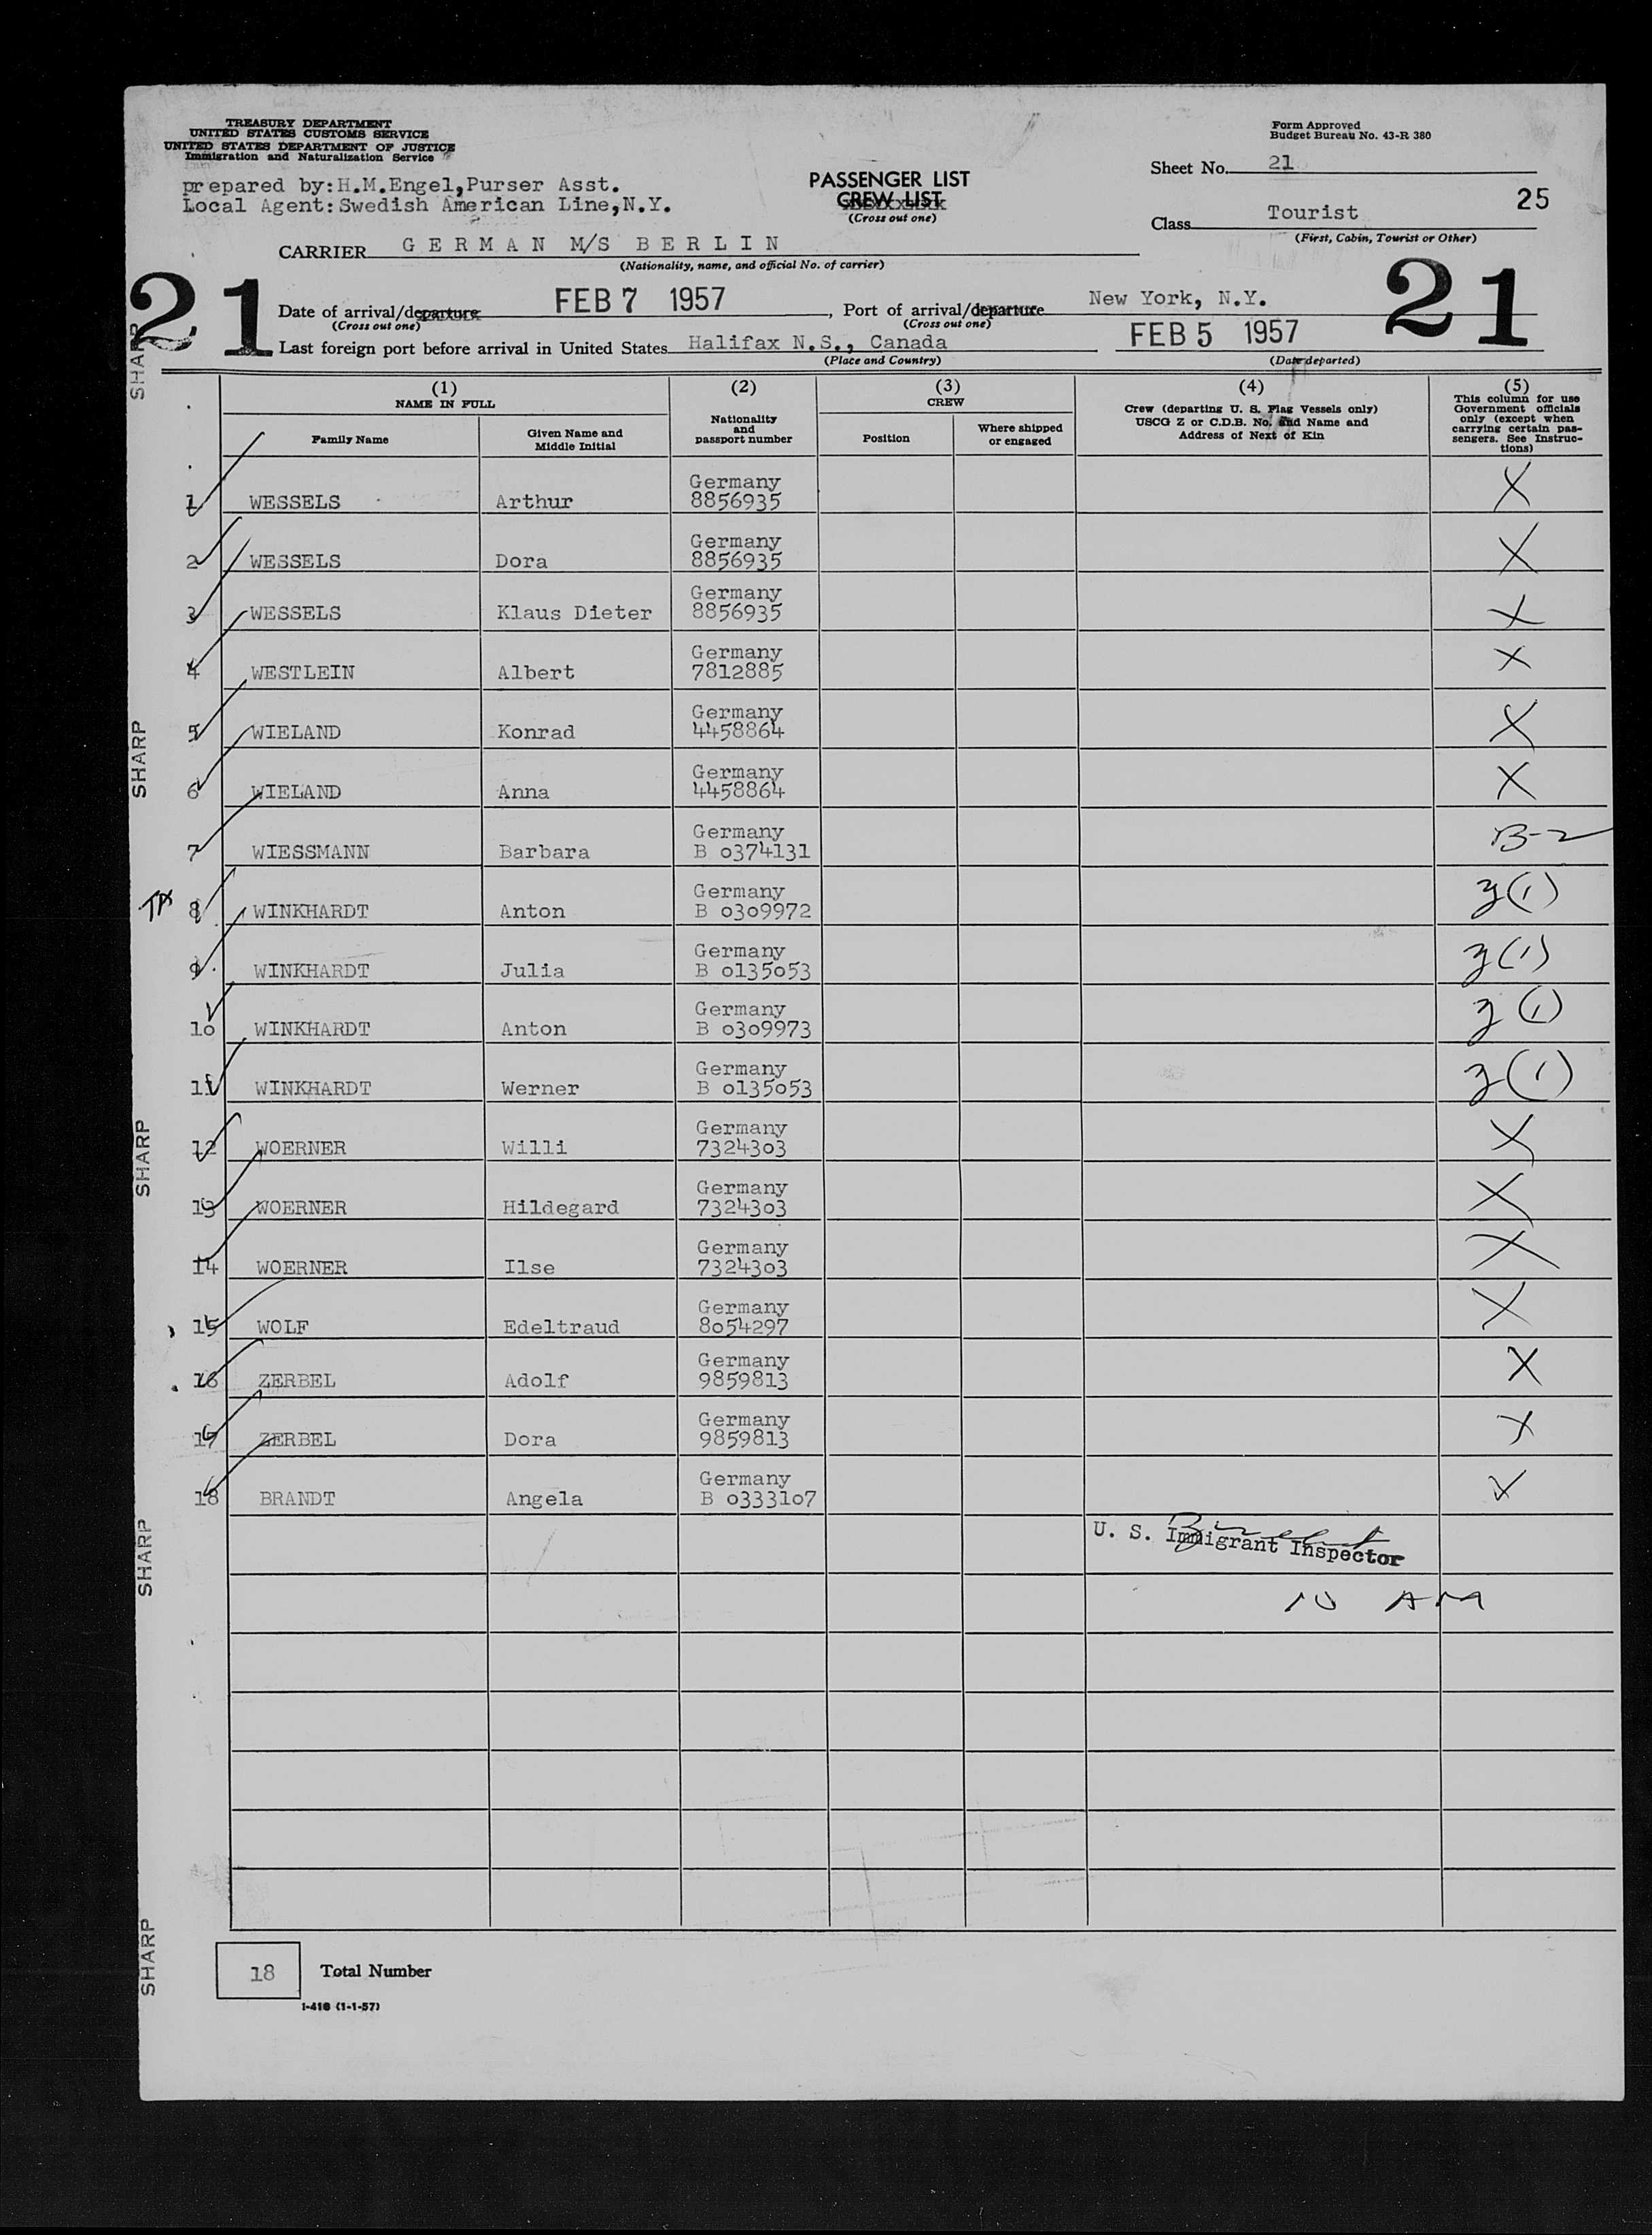 TREASURY DEPARTMENT
UNITED STATES CUSTOMS SERVICE
UNITED STATES DEPARTMENT OF JUSTICE
Immigration and Naturalization Service
prepared by:H.M.Engel,Purser Asst.
Local Agent:Swedish American Line,N.Y.
PASSENGER LIST
CREW LIST
(Cross out one)
Form Approved
Budget Bureau No. 43-R 380
Sheet No. 21
25
Class Tourist
(First, Cabin, Tourist or Other)
CARRIER GERMAN M/S BERLIN
(Nationality, name, and official No. of carrier)
21
21
Date of arrival/departure FEB 7 1957, Port of arrival/departure New York, N.Y.
(Cross out one) (Cross out one)
Last foreign port before arrival in United States Halifax N.S., Canada FEB 5 1957
(Place and Country) (Date departed)
(1) (2) (3) (4) (5)
NAME IN FULL
Family Name
Given Name and Middle Initial
Nationality and passport number
CREW
Position
Where shipped or engaged
Crew (departing U. S. Flag Vessels only)
USCG Z or C.D.B. No. and Name and
Address of Next of Kin
This column for use
Government officials
only (except when
carrying certain pas-
sengers. See Instruc-
tions)
1 WESSELS Arthur Germany 8856935 X
2 WESSELS Dora Germany 8856935 X
3 WESSELS Klaus Dieter Germany 8856935 X
4 WESTLEIN Albert Germany 7812885 X
5 WIELAND Konrad Germany 4458864 X
6 WIELAND Anna Germany 4458864 X
7 WIESSMANN Barbara Germany B 0374131 B-2
8 WINKHARDT Anton Germany B 0309972 3(1)
9 WINKHARDT Julia Germany B 0135053 3(1)
10 WINKHARDT Anton Germany B 0309973 3(1)
11 WINKHARDT Werner Germany B 0135053 3(1)
12 WOERNER Willi Germany 7324303 X
13 WOERNER Hildegard Germany 7324303 X
14 WOERNER Ilse Germany 7324303 X
15 WOLF Edeltraud Germany 8054297 X
16 ZERBEL Adolf Germany 9859813 X
17 ZERBEL Dora Germany 9859813 X
18 BRANDT Angela Germany B 0333107 X
U. S. Immigrant Inspector
10 AM
18 Total Number
I-418 (1-1-57)
SHARP
SHARP
SHARP
SHARP
SHARP